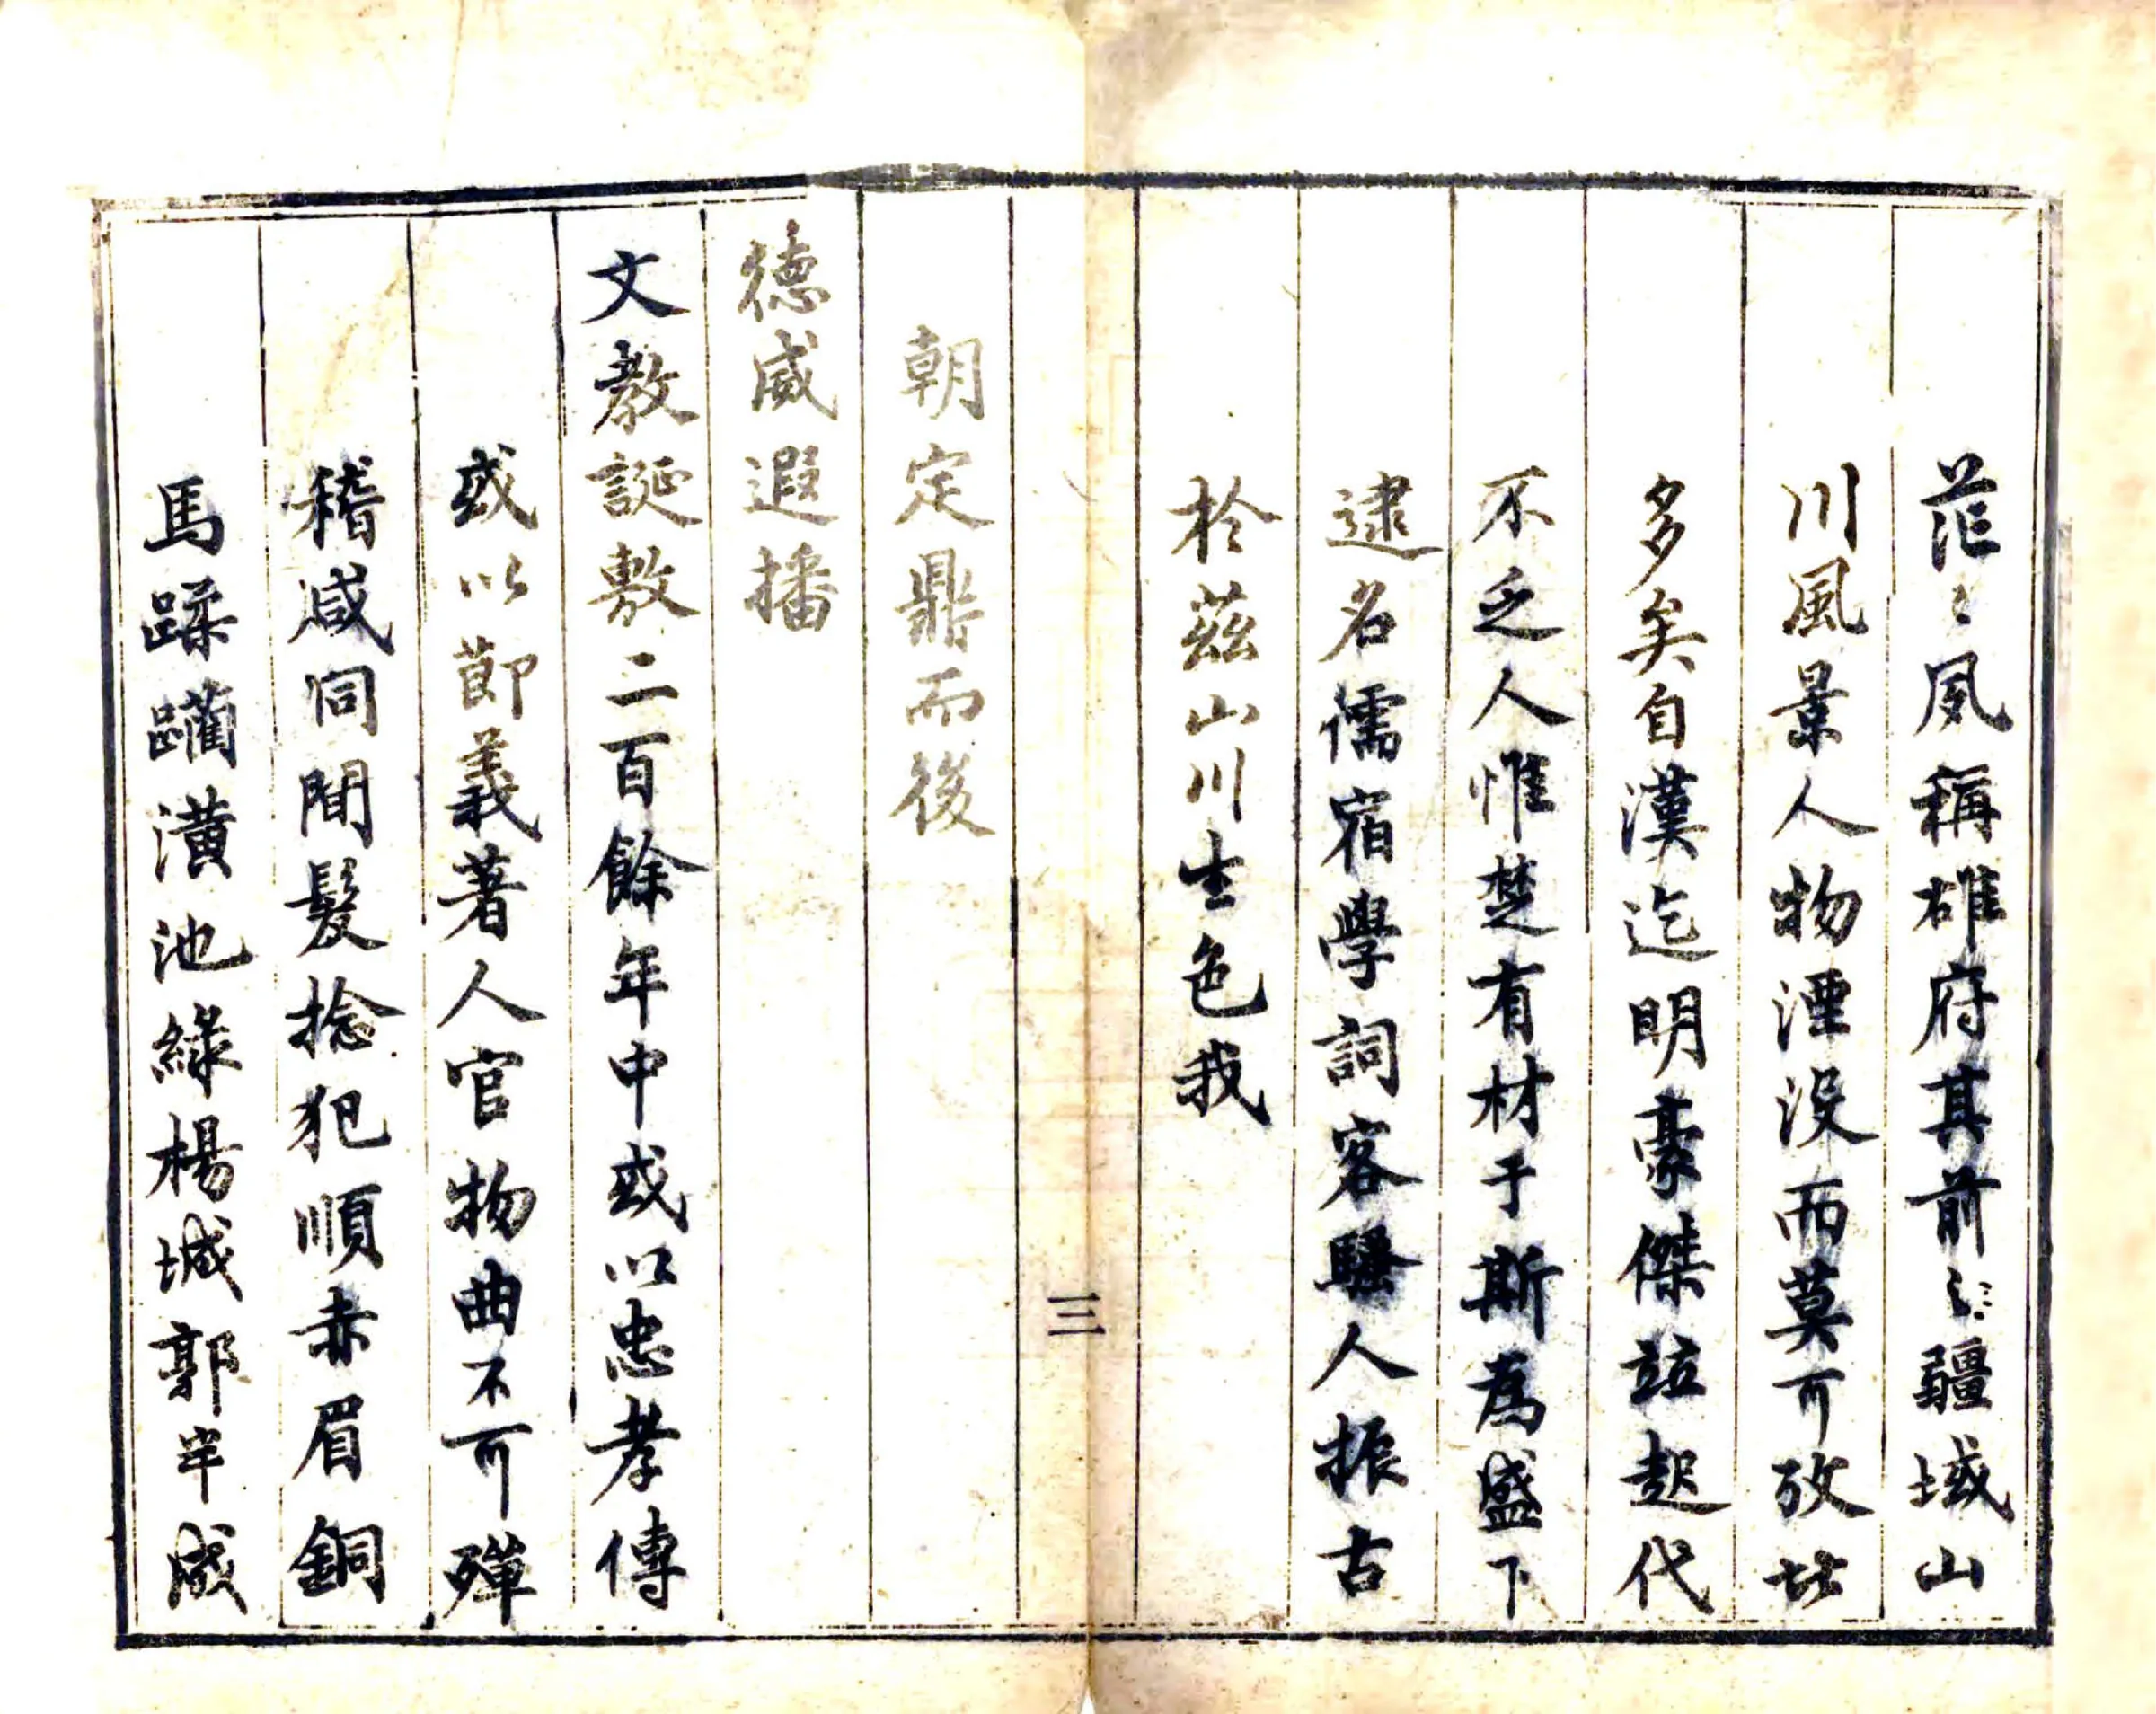 茫〻夙稱雄府其前之疆域山
川風景人物湮没而莫可攷
多矣自漢迄明豪傑竝起代
不乏人惟楚有材于斯為盛下
逮名儒宿學詞客騷人振古
於茲山川生色我
三
朝定鼎而後
德威遐播
文教誕敷二百餘年中或以忠孝傳
或以節義著人官物曲不可殫
稽咸同間髮捻犯順赤眉銅
馬蹂躪潢池綠楊城郭半成